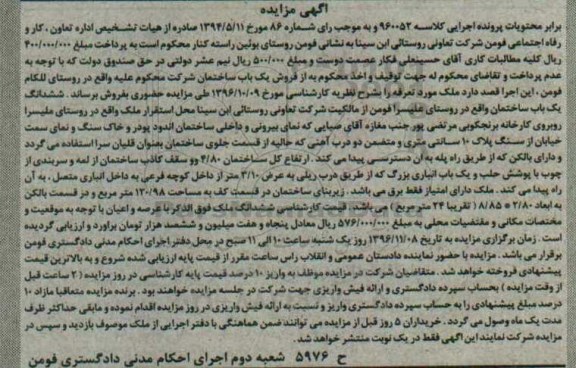 آگهی مزایده
برابر محتویات پرونده اجرایی کلاسه ۹۶۰۰۵۲ و به موجب رای شماره ۸۶ مورخ ۱۳۹۴/۵/۱۱ صادره از هیات تشخیص اداره تعاون ، کار و
رفاه اجتماعی فومن شرکت تعاونی روستائی ابن سینا به نشانی فومن روستای بوئین راسته کنار محکوم است به پرداخت مبلغ ۴۰۰/۰۰۰/۰۰۰
ریال کلیه مطالبات کاری آقای حسینعلی فکار عصمت دوست و مبلغ ۵۰۰/۰۰۰ ریال نیم عشر دولتی در حق صندوق دولت که با توجه به
عدم پرداخت و تقاضای محکوم له جهت توقیف و اخذ محکوم به از فروش یک باب ساختمان شرکت محکوم علیه واقع در روستای للکام
فومن ، این اجرا قصد دارد ملک مورد تعرفه را بشرح نظریه کارشناسی مورخ ۱۳۹۶/۱۰/۰۹ طی مزایده حضوری بفروش برساند . ششدانگ
یک باب ساختمان واقع در روستای ملیسرا فومن از مالکیت شرکت تعاونی روستائی ابن سینا محل استقرار ملک واقع در روستای ملیسرا
روبروی کارخانه برنجکوبی مرتضی پور جنب مغازه آقای ضیایی که نمای بیرونی و داخلی ساختمان اندود پودر و خاک سنگ و نمای سمت
خیابان از سنگ پلاک ۱۰ سانتی متری و متضمن دو درب آهنی که حالیه از قسمت جلوی ساختمان بعنوان قلیان سرا استفاده می گردد
و دارای بالکن که از طریق راه پله به آن دسترسی پیدا می کند . ارتفاع کل ساختمان ۴/۸۰ وو سقف کاذب ساختمان از لمه و سربندی از
چوب با پوشش حلب و یک باب انباری بزرگ که از طریق درب ریلی به عرض ۳/۱۰ متر از داخل کوچه فرعی به داخل انباری متصل ، به آن
راه پیدا می کند . ملک دارای امتیاز فقط برق می باشد . زیربنای ساختمان در قسمت کف به مساحت ۱۳۰/۹۸ متر مربع و در قسمت بالکن
به ابعاد ۲/۸۰ × ۸/۸۵ ( تقریبا ۲۴ متر مربع ) می باشد . قیمت کارشناسی ششدانگ ملک فوق الذکر از عرصه و اعیان با توجه به موقعیت و
مختصات مکانی و مقتضیات محلی به مبلغ ۵۷۶/۰۰۰/۰۰۰ ریال معادل پنجاه و هفت میلیون و ششصد هزار تومان براورد و ارزیابی گردیده
است . زمان برگزاری مزایده به تاریخ ۱۳۹۶/۱۱/۰۸ روز یک شنبه ساعت ۱۰ الی ۱۱ صبح در محل دفتر اجرای احکام مدنی دادگستری فومن
برقرار می باشد . مزایده با حضور نماینده دادستان عمومی و انقلاب راس ساعت مقرر از قیمت پایه ارزیابی شده شروع و به بالاترین قیمت
پیشنهادی فروخته خواهد شد . متقاضیان شرکت در مزایده موظف به واریز ۱۰ درصد قیمت پایه کارشناسی در روز مزایده ( ۲ ساعت قبل
از وقت مزایده ) بحساب سپرده دادگستری و ارائه فیش واریزی جهت شرکت در جلسه مزایده خواهند بود . برنده مزایده متعاقبا مازاد ۱۰
درصد مبلغ پیشنهادی را به حساب سپرده دادگستری واریز و نسبت به ارائه فیش واریزی در روز مزایده اقدام نموده و مابقی حداکثر ظرف
مدت یک ماه وصول می گردد . خریداران ۵ روز قبل از مزایده می توانند ضمن هماهنگی با دفتر اجرایی از ملک موصوف بازدید و سپس در
مزایده شرکت نمایند این آگهی فقط در یک نوبت منتشر خواهد شد .
ح ۵۹۷۶ شعبه دوم اجرای احکام مدنی دادگستری فومن